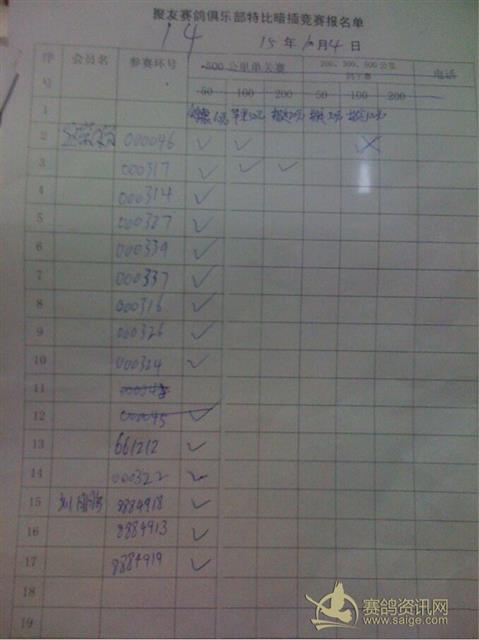 聚友赛鸽俱乐部特比暗插竞赛报名单
14 15年10月4日
序号 会员名 参赛环号 500公里单关赛 200、300、500公里 电话
50 100 200 50 100 200
1
2 000046 ✓ ✓ ✗
3 000317 ✓ ✓ ✓
4 000314 ✓
5 000327 ✓
6 000339 ✓
7 000337 ✓
8 000316 ✓
9 000326 ✓
10 000324 ✓
11
12 000045 ✓
13 661212 ✓
14 000322 ✓
15 8884918 ✓
16 8884913 ✓
17 8884919 ✓
18
19
赛鸽资讯网
www.saige.com